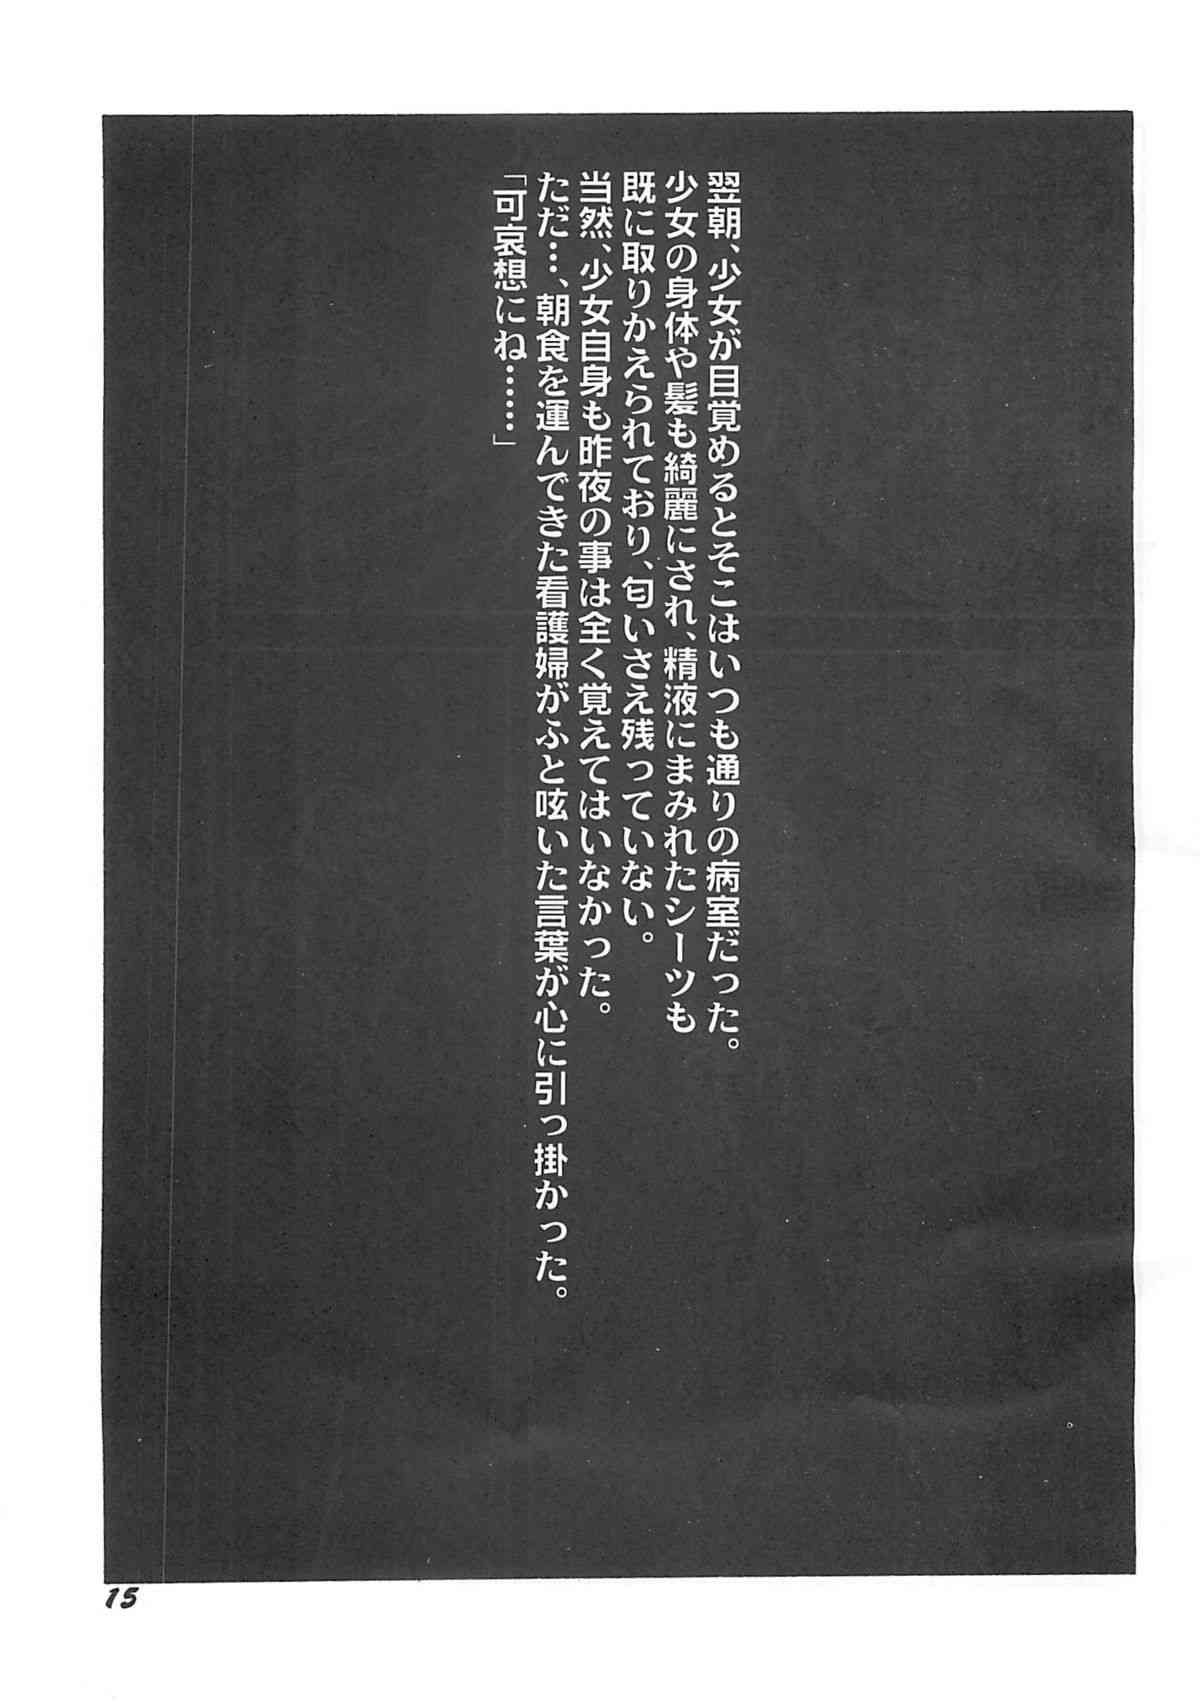 翌朝、少女が目覚めるとそこはいつも通りの病室だった。
少女の身体や髪も綺麗にされ、精液にまみれたシーツも
既に取りかえられており、匂いさえ残っていない。
当然、少女自身も昨夜の事は全く覚えてはいなかった。
ただ…、朝食を運んできた看護婦がふと呟いた言葉が心に引っ掛かった。
「可哀想にね……」
15